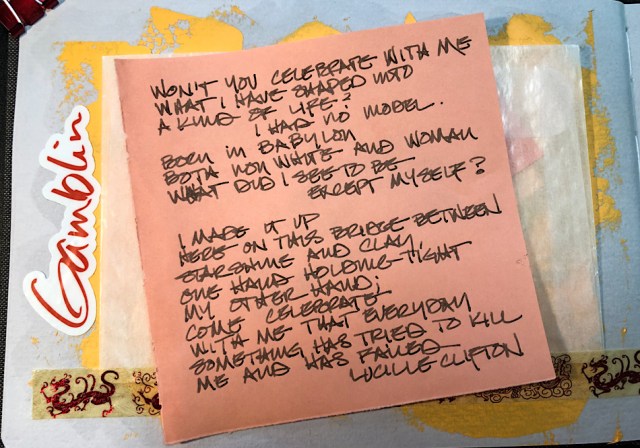 Gamblin
WON'T YOU CELEBRATE WITH ME
WHAT I HAVE SHAPED INTO
A KIND OF LIFE?
I HAD NO MODEL.
BORN IN BABYLON
BOTH NON WHITE AND WOMAN
WHAT DID I SEE TO BE
EXCEPT MYSELF?
I MADE IT UP
HERE ON THIS BRIDGE BETWEEN
STARSHINE AND CLAY,
ONE HAND HOLDING TIGHT
MY OTHER HAND;
COME CELEBRATE
WITH ME THAT EVERYDAY
SOMETHING HAS TRIED TO KILL
ME AND HAS FAILED
LUCILLE CLIFTON